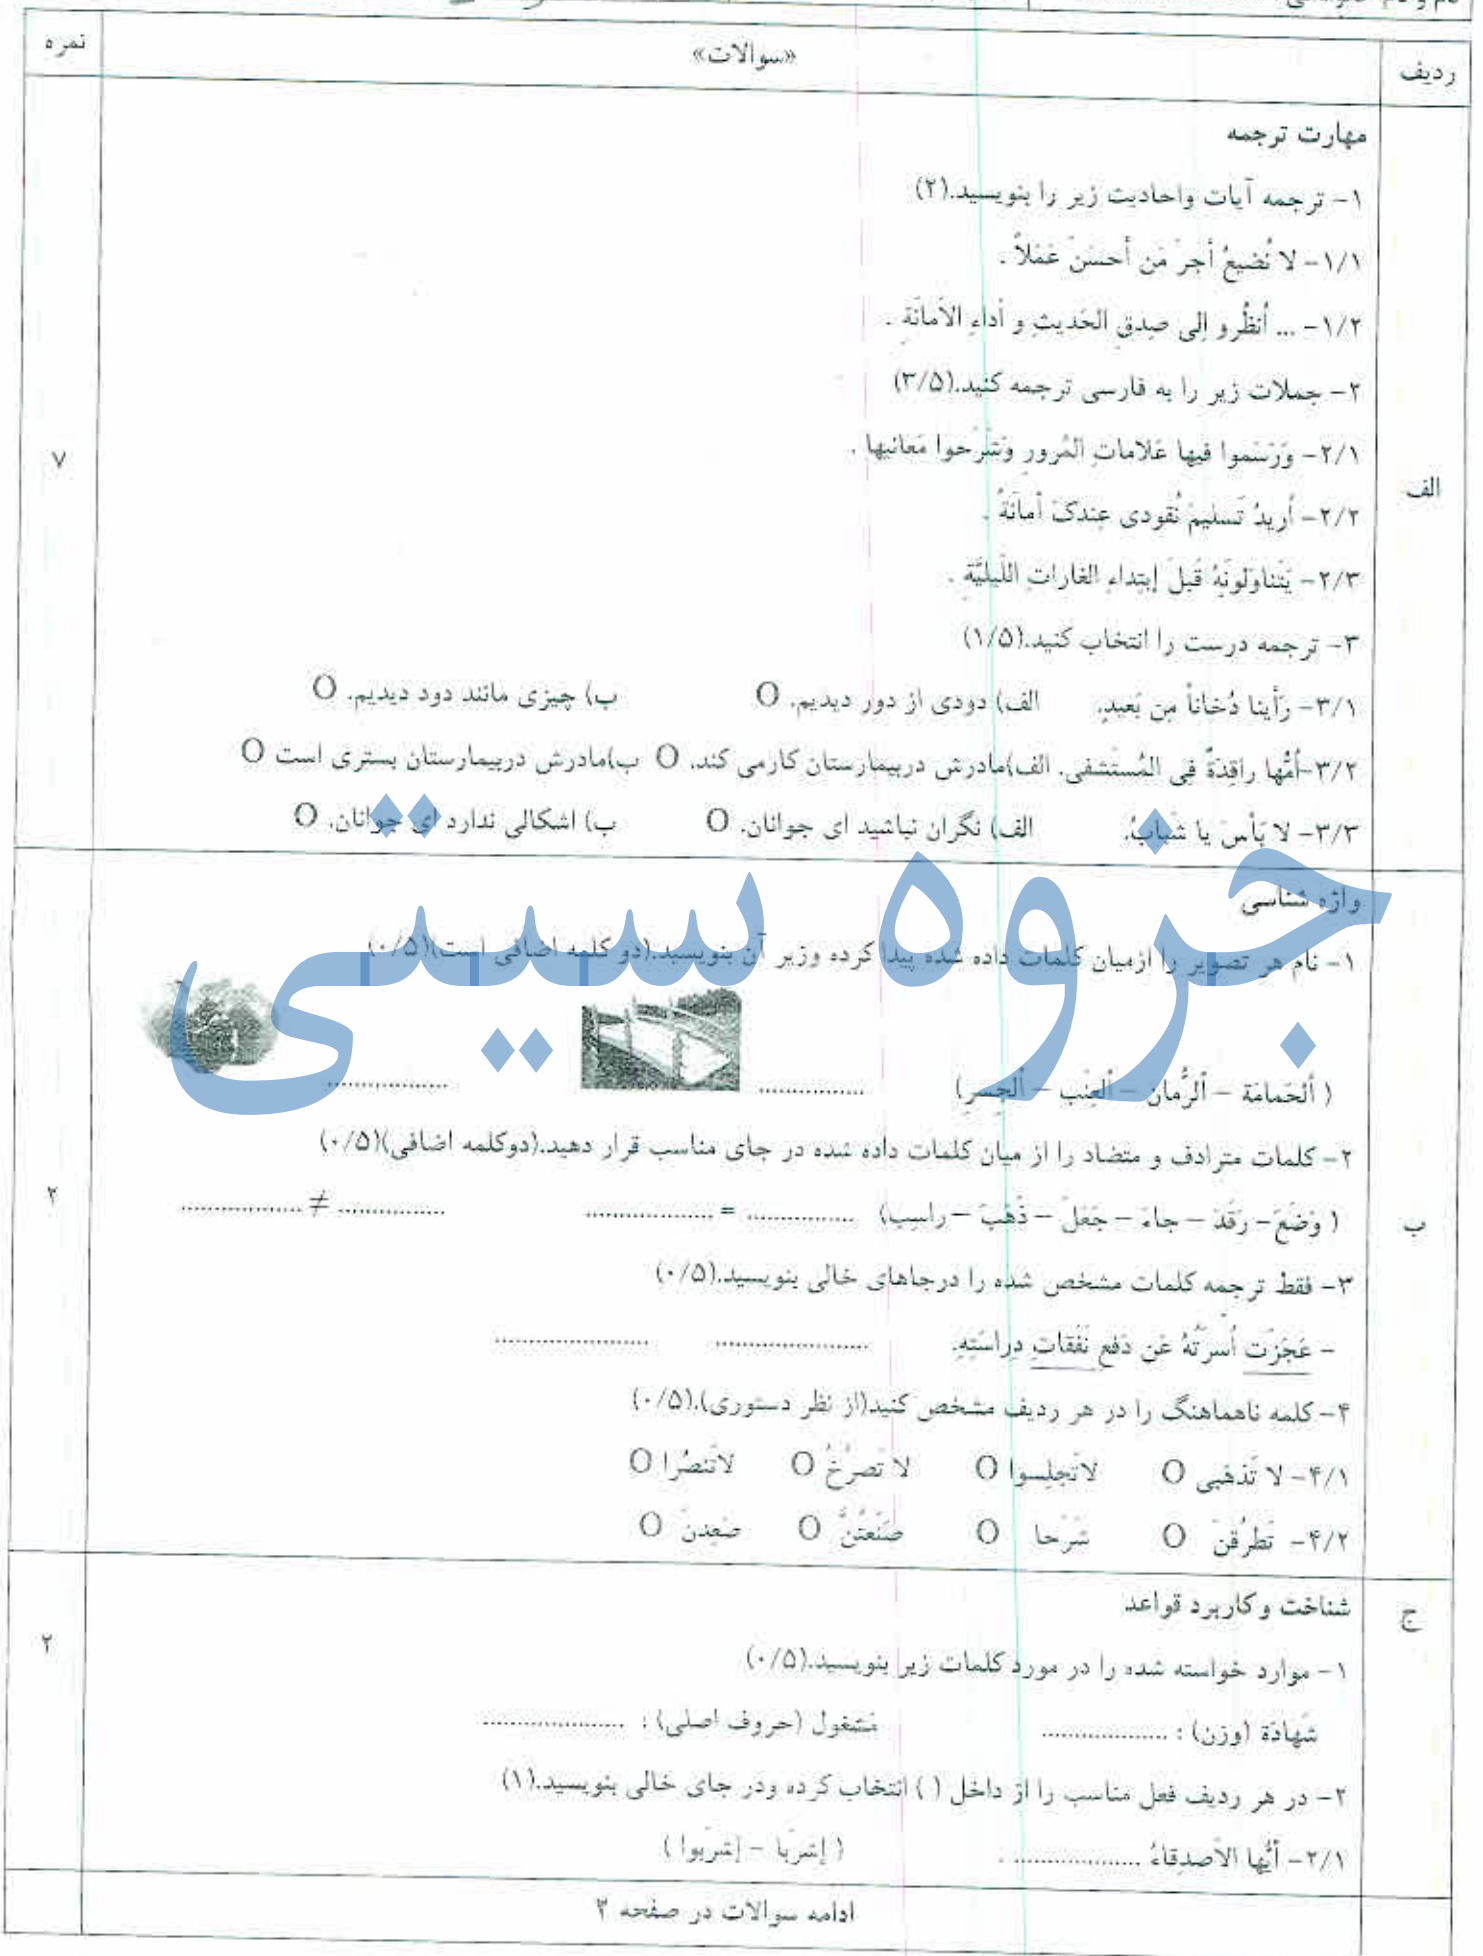 ردیف «سوالات» نمره
مهارت ترجمه
۱- ترجمه آیات واحادیث زیر را بنویسید.(۲)
۱/۱- لا نُضیعُ أجرَ مَن أحسَنَ عَمَلاً .
۱/۲- ... اُنظُرو إلی صِدقِ الحَدیثِ و أداءِ الاَمانَةِ .
۲- جملات زیر را به فارسی ترجمه کنید.(۳/۵)
۲/۱- وَرَسَموا فیها عَلاماتِ المُرورِ وَشَرَحوا مَعانیها .
الف ۷
۲/۲- اُریدُ تَسلیمَ نُقودی عِندَکَ أمانَةً .
۲/۳- یَتَناوَلونَهُ قَبلَ إبتِداءِ الغاراتِ اللَیلیَّةِ .
۳- ترجمه درست را انتخاب کنید.(۱/۵)
۳/۱- رَأینا دُخاناً مِن بَعیدٍ. الف) دودی از دور دیدیم. O ب) چیزی مانند دود دیدیم. O
۳/۲-اُمُّها راقِدَةٌ فِی المُستَشفی. الف)مادرش دربیمارستان کارمی کند. O ب)مادرش دربیمارستان بستری است O
۳/۳- لا بَأسَ یا شَبابُ. الف) نگران نباشید ای جوانان. O ب) اشکالی ندارد ای جوانان. O
جزوه سیتی
واژه شناسی
۱- نام هر تصویر را ازمیان کلمات داده شده پیدا کرده وزیر آن بنویسید.(دو کلمه اضافی است)(۰/۵)
( ألحَمامَة – ألرُّمان – ألعِنَب – ألجِسر) ................ ................
۲- کلمات مترادف و متضاد را از میان کلمات داده شده در جای مناسب قرار دهید.(دوکلمه اضافی)(۰/۵)
ب ( وَضَعَ – رَقَدَ – جاءَ – جَعَلَ – ذَهَبَ – راسِب) ................ = ................ ................ ≠ ................ ۲
۳- فقط ترجمه کلمات مشخص شده را درجاهای خالی بنویسید.(۰/۵)
- عَجَزَت اُسرَتُهُ عَن دَفعِ نَفَقاتِ دِراسَتِهِ. ................ ................
۴- کلمه ناهماهنگ را در هر ردیف مشخص کنید(از نظر دستوری).(۰/۵)
۴/۱- لا تَذهَبی O لاتَجلِسوا O لا تَصرُخُ O لاتَنصُرا O
۴/۲- تَطرُقنَ O شَرَحا O صَنَعتُنَّ O صَعِدنَ O
ج شناخت و کاربرد قواعد
۲
۱- موارد خواسته شده را در مورد کلمات زیر بنویسید.(۰/۵)
شَهادَة (وزن) : ................ مَشغول (حروف اصلی) : ................
۲- در هر ردیف فعل مناسب را از داخل ( ) انتخاب کرده ودر جای خالی بنویسید.(۱)
۲/۱- أیُّها الاَصدِقاءُ ................ . ( إشرَبا – إشرَبوا )
ادامه سوالات در صفحه ۲